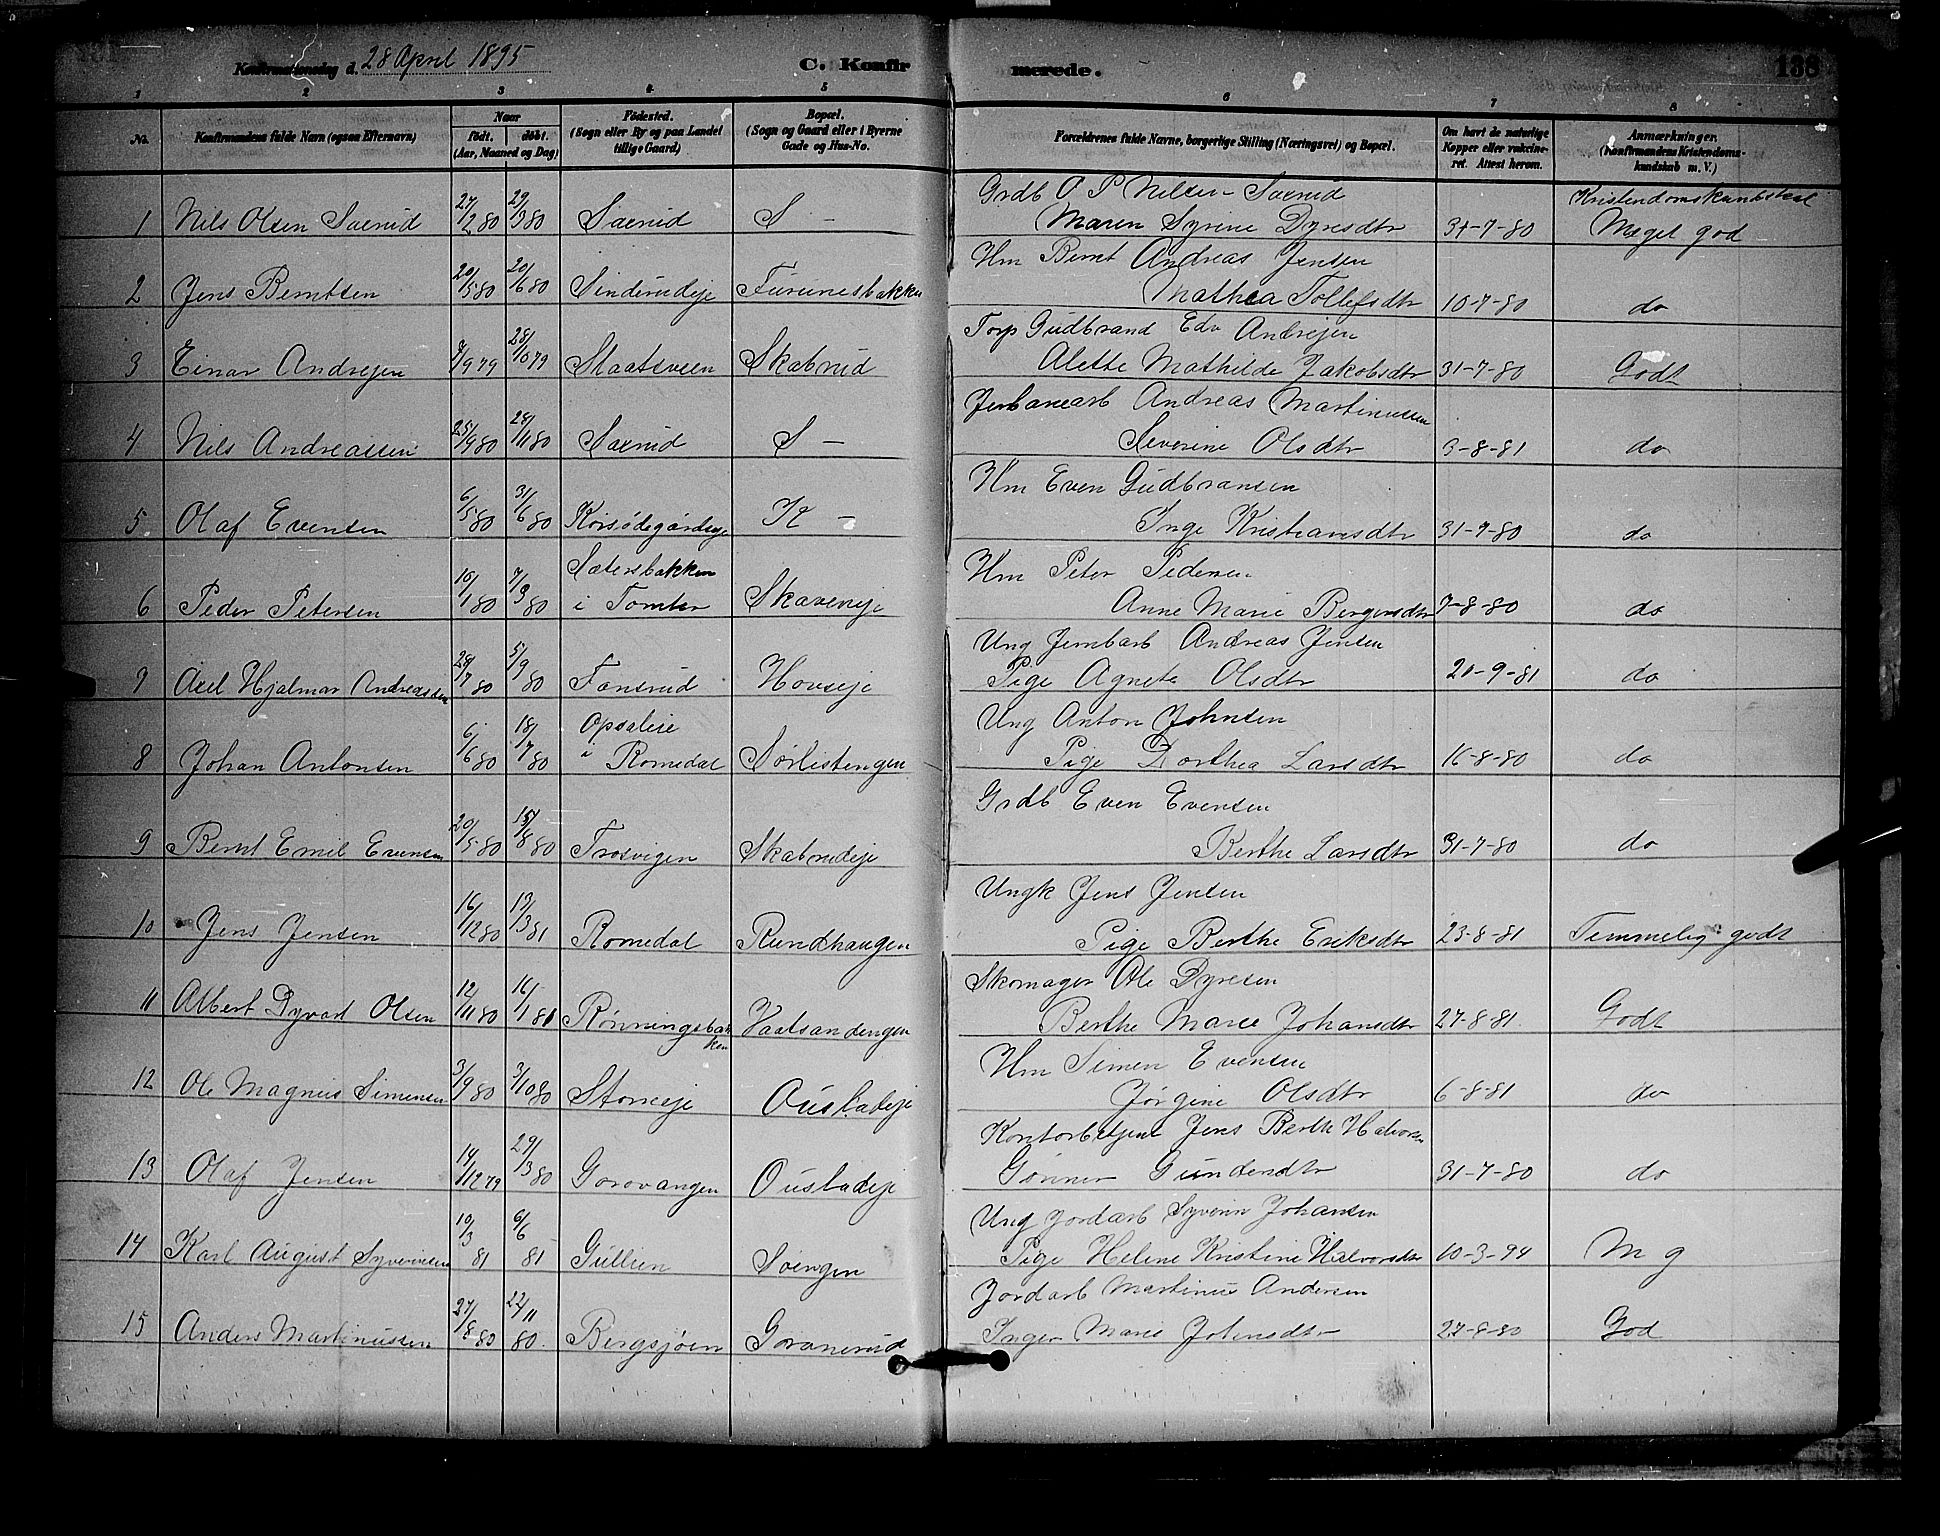 Konfirmationsdag d. 28 April 1895
C. Konfirmerede.
138
1 2 3 4 5 6 7 8
No.
Konfirmandens fulde Navn (ogsaa Efternavn)
Naar
født. døbt.
(Aar, Maaned og Dag)
Fødested.
(Sogn eller By og paa Landet
tillige Gaard)
Bopæl.
(Sogn og Gaard eller i Byerne
Gade og Hus-No.
Forældrenes fulde Navne, borgerlige Stilling (Næringsvei) og Bopæl.
Om havt de naturlige
Kopper eller vakcine-
ret. Attest herom.
Anmærkninger.
(Konfirmandens Kristendoms-
kundskab m. V.)
Grdb O P Nilsen Saxrud
Kristendomskundskab
1 Nils Olsen Saxrud 27/2 80 29/3 80 Saxrud S - Maren Syrine Dyresdtr 31-7-80 Meget god
Hm Bernt Andreas Jensen
2 Jens Berntsen 20/5 80 20/6 80 Sinderudeje Furunesbakken Mathea Tollefsdtr 10-7-80 do
Torp Gudbrand Edv Andrejen
3 Einar Andrejen 7/9 79 28/10 79 Staatsveen Skabrud Alette Mathilde Jakobsdtr 31-7-80 Godt
Jernbanearb Andreas Martinussen
4 Nils Andreassen 25/9 80 28/11 80 Saxrud S - Severine Olsdtr 3-8-81 do
Hm Even Gudbransen
5 Olaf Evensen 6/5 80 31/6 80 Korsødegårdseje K - Inge Kristiansdtr 31-7-80 do
Sætersbakken
Hm Peter Pedersen
6 Peder Petersen 10/1 80 7/3 80 i Tomter Skaveneje Anne Marie Bergersdtr 7-8-80 do
Ung Jernbarb Andreas Jensen
7 Axel Hjalmar Andreassen 28/7 80 5/9 80 Fonsrud Hovseje Pige Agnete Olsdtr 20-9-81 do
Opsaleie
Ung Anton Johnsen
8 Johan Antonsen 6/6 80 18/7 80 i Romedal Sørlistengen Pige Dorthea Larsdtr 16-8-80 do
Grdb Even Evensen
9 Bernt Emil Evensen 20/5 80 15/8 80 Frosvigen Skabrudeje Berthe Larsdtr 31-7-80 do
Ungk Jens Jensen
10 Jens Jensen 16/12 80 13/3 81 Romedal Rundhaugen Pige Berthe Eriksdtr 23-8-81 Temmelig godt
Skomager Ole Dyresen
11 Albert Dyvart Olsen 12/11 80 16/1 81 Rønningsbakken Vaatsandengen Berthe Marie Johansdtr 27-8-81 Godt
Hm Simen Evensen
12 Ole Magnus Simensen 3/9 80 3/10 80 Stomeje Ousbadeje Jørgine Olsdtr 6-8-81 do
Kontorbetjent Jens Berth Halvorsen
13 Olaf Jensen 14/12 79 29/3 80 Gorovangen Ousbadeje Gunner Gundersdtr 31-7-80 do
Ung Jordarb Syverin Johansen
14 Karl August Syverinsen 10/3 81 6/6 81 Gullien Soengen Pige Helene Kristine Halvorsdtr 10-3-94 M g
Jordarb Martinus Andersen
15 Anders Martinussen 27/8 80 22/11 80 Bergsjøen Goranerud Inger Marie Johnsdtr 27-8-80 God